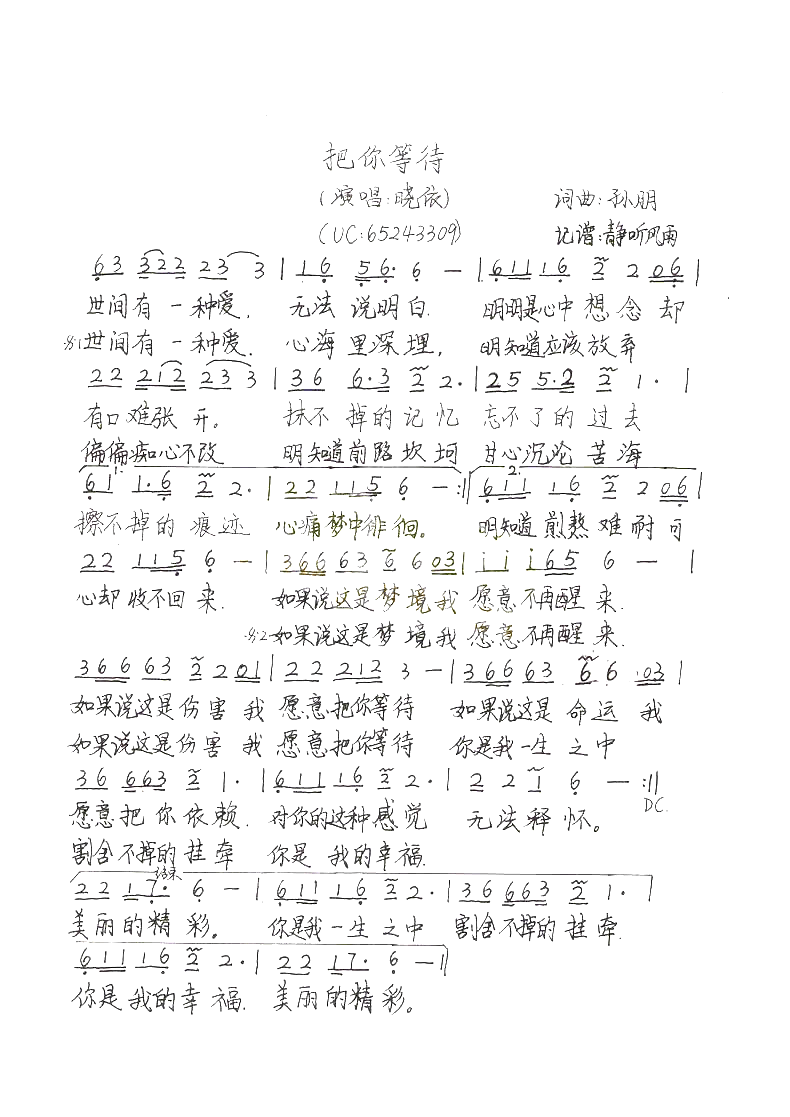 把你等待
(演唱:晓依) 词曲:孙朋
(UC:65243309) 记谱:静听风雨
63 322 23 3 | 16 56· 6 — | 61116 2 2 06 |
世间有一种爱. 无法说明白. 明明是心中想念却
%1世间有一种爱. 心海里深埋, 明知道应该放弃
22 212 23 3 | 36 6·3 2 2· | 25 5·2 2 1· |
有口难张开。 抹不掉的记忆 忘不了的过去
偏偏痴心不改 明知道前路坎坷 甘心沉沦苦海
1. 2.
61 1·6 2 2· | 22 115 6 — :|| 611 16 2 2 06 |
擦不掉的痕迹 心痛梦中徘徊。 明知道煎熬难耐可
22 115 6 — | 366 63 6 6 03 | i i i65 6 — |
心却收不回来. 如果说这是梦境我愿意不再醒来.
%2如果说这是梦境我愿意不再醒来.
366 63 2 2 01 | 22 212 3 — | 366 63 6 6 03 |
如果说这是伤害我愿意把你等待 如果说这是命运我
如果说这是伤害我愿意把你等待 你是我一生之中
36 663 2 1· | 611 16 2 2· | 2 2 1 6 — :||
DC.
愿意把你依赖. 对你的这种感觉 无法释怀。
割舍不掉的挂牵 你是我的幸福.
结束
22 17· 6 — | 611 16 2 2· | 36 663 2 1· |
美丽的精彩。 你是我一生之中 割舍不掉的挂牵.
611 16 2 2· | 22 17· 6 — ||
你是我的幸福. 美丽的精彩。